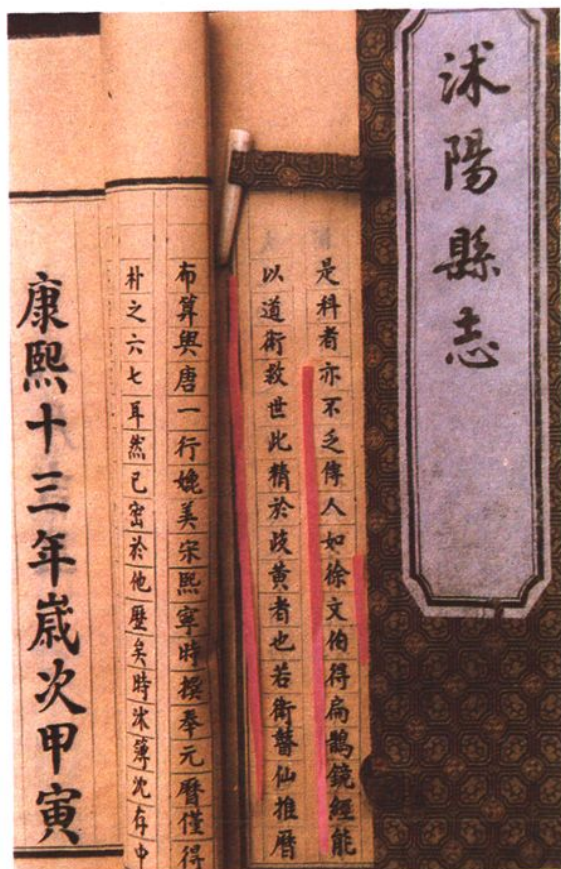 沭陽縣志
是科者亦不乏傳人如徐文伯得扁鵲鏡經能
以道術救世此精於歧黃者也若衛瞽仙推曆
布算與唐一行媲美宋熙寧時撰奉元曆僅得
朴之六七耳然已密於他歷矣時沭簿沈存中
康熙十三年歲次甲寅